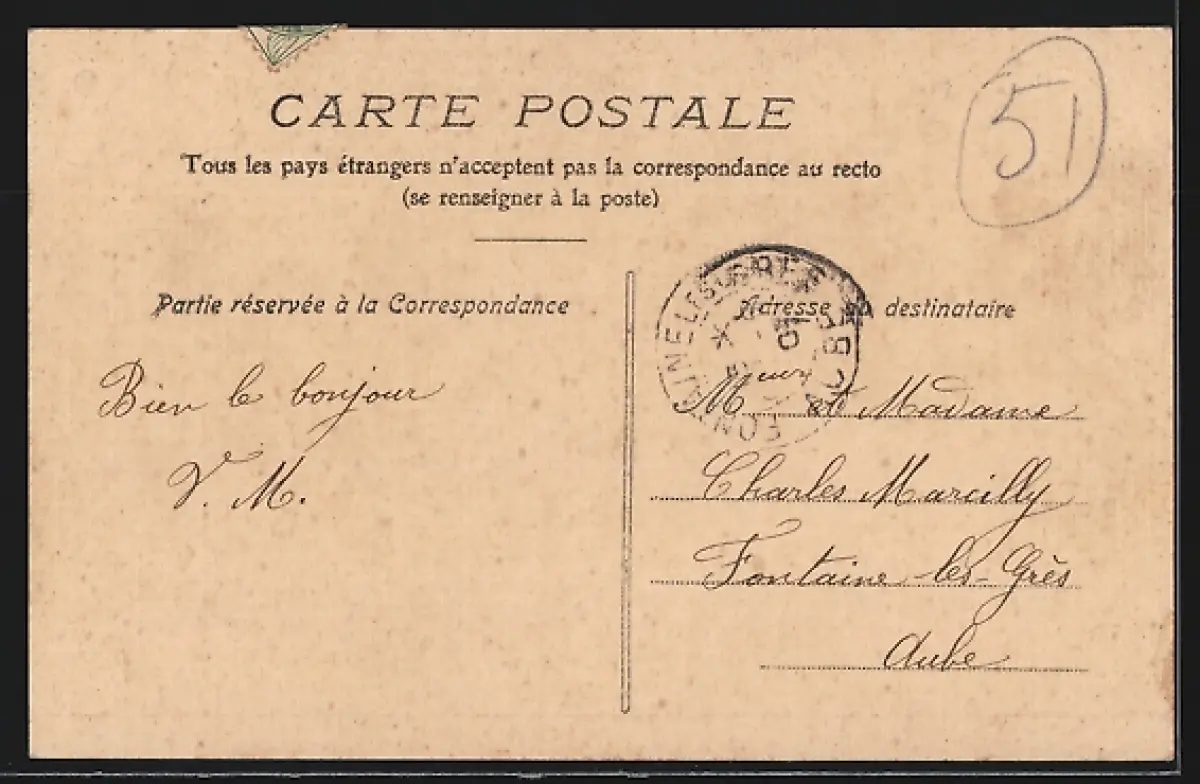 CARTE POSTALE
51
Tous les pays étrangers n'acceptent pas la correspondance au recto
(se renseigner à la poste)
Partie réservée à la Correspondance
Bien le bonjour
V. M.
FONTAINE LES GRES
Adresse du destinataire
M et Madame
Charles Marcilly
Fontaine-les-Grès
Aube